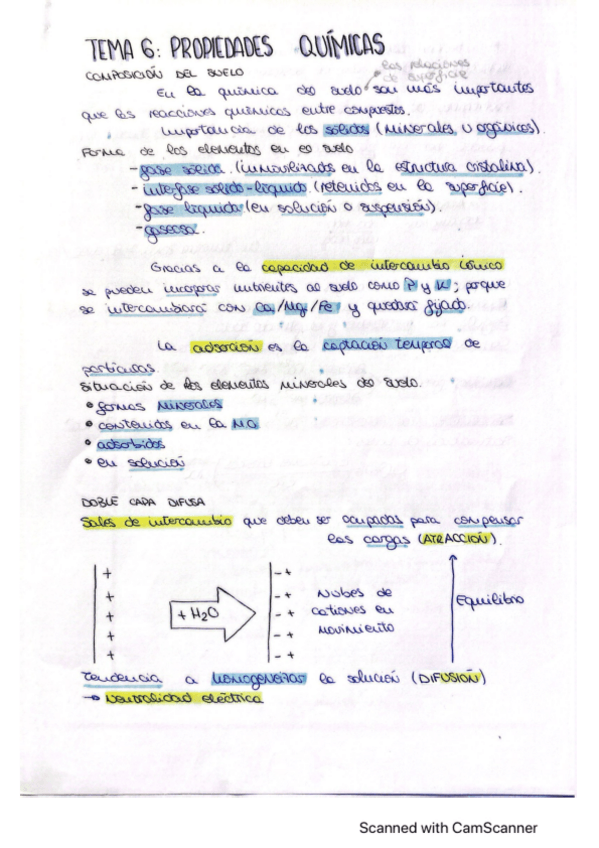 TEMA 6: PROPIEDADES QUÍMICAS
COMPOSICIÓN DEL SUELO
las relaciones
de superficie
En la química del suelo son más importantes
que las reacciones químicas entre compuestos.
Importancia de los sólidos (minerales u orgánicos).
Forma de los elementos en el suelo
- fase sólida (inmovilizados en la estructura cristalina).
- interfase sólido-líquido (retenidos en la superficie).
- fase líquida (en solución o suspensión).
- gaseosa.
Gracias a la capacidad de intercambio iónico
se pueden incorporar nutrientes al suelo como P y K; porque
se intercambiará con Ca/Mg/Fe y quedará fijado.
La adsorción es la captación temporal de
partículas.
Situación de los elementos minerales del suelo.
• formas minerales
• contenidos en la MO
• adsorbidos
• en solución
DOBLE CAPA DIFUSA
Sales de intercambio que deben ser ocupadas para compensar
las cargas (ATRACCIÓN).
+ - +
+ - +
+ - +
+ - +
+ - +
+ H2O
Nubes de
cationes en
movimiento
Equilibrio
Tendencia a homogeneizar la solución (DIFUSIÓN)
→ Neutralidad eléctrica
Scanned with CamScanner